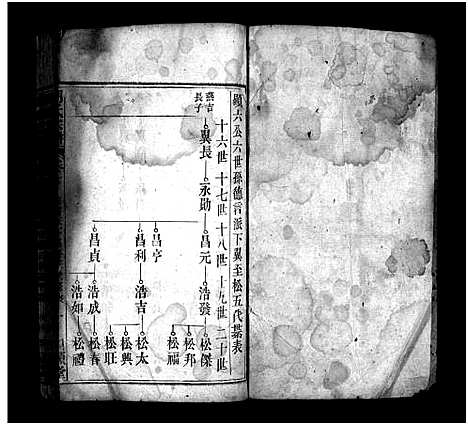 顯六公六世孫德言派下翼至松五代掛表
十六世 十七世 十八世 十九世 二十世
長子
翼長 永助 昌元 浩發 松傑
松邦
松福
昌亨
昌利 浩吉 松太
松興
松旺
昌貞 浩成 松春
浩如 松禮